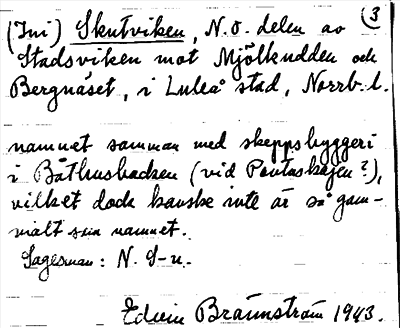 (Ini) Skutviken, N.O. delen av (3)
Stadsviken mot Mjölkudden och
Bergnäset, i Luleå stad, Norrb. l.
namnet samman med skeppsbyggeri
i Båthusbacken (vid Pontuskajen?),
vilket dock kanske inte är så gam-
malt som namnet.
Sagesman: N. S-n.
Edvin Brännström 1943.